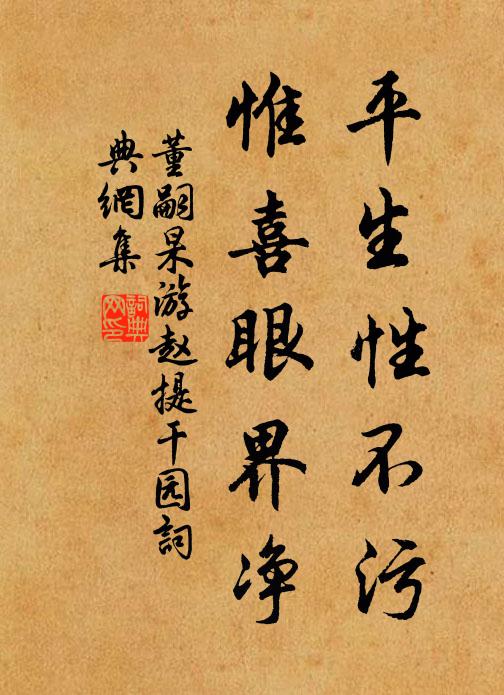 平生性不污
惟喜眼界净
董嗣杲游赵提干园詞
典網集
詞典網印